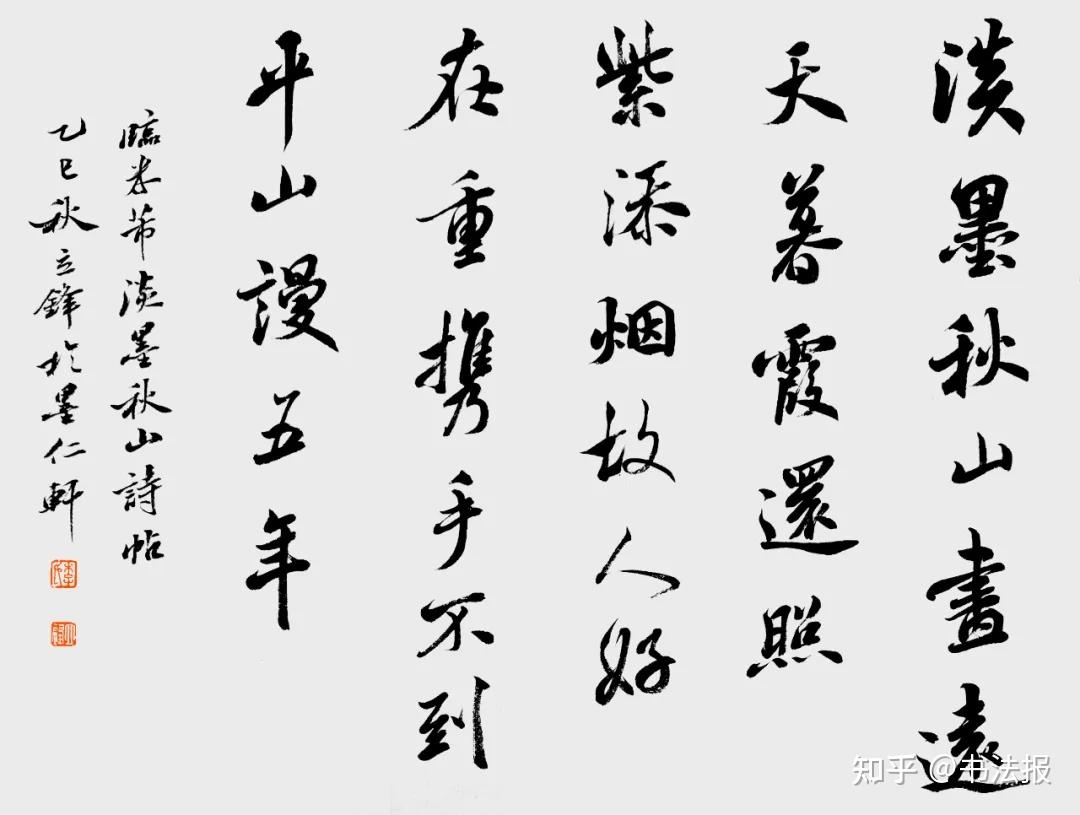 淡墨秋山畫遠
天暮霞還照
紫添烟故人好
在重攜手不到
平山謾五年
臨米芾淡墨秋山詩帖
乙巳秋立鋒於墨仁軒
知乎 @书法报